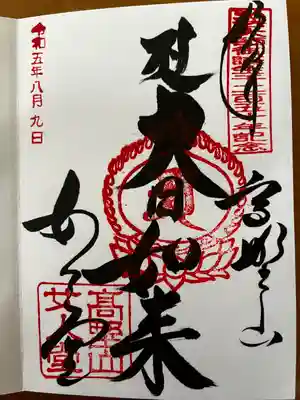 奉拝
高野山
大日如来
女人堂
高野山
女人堂
令和五年八月九日